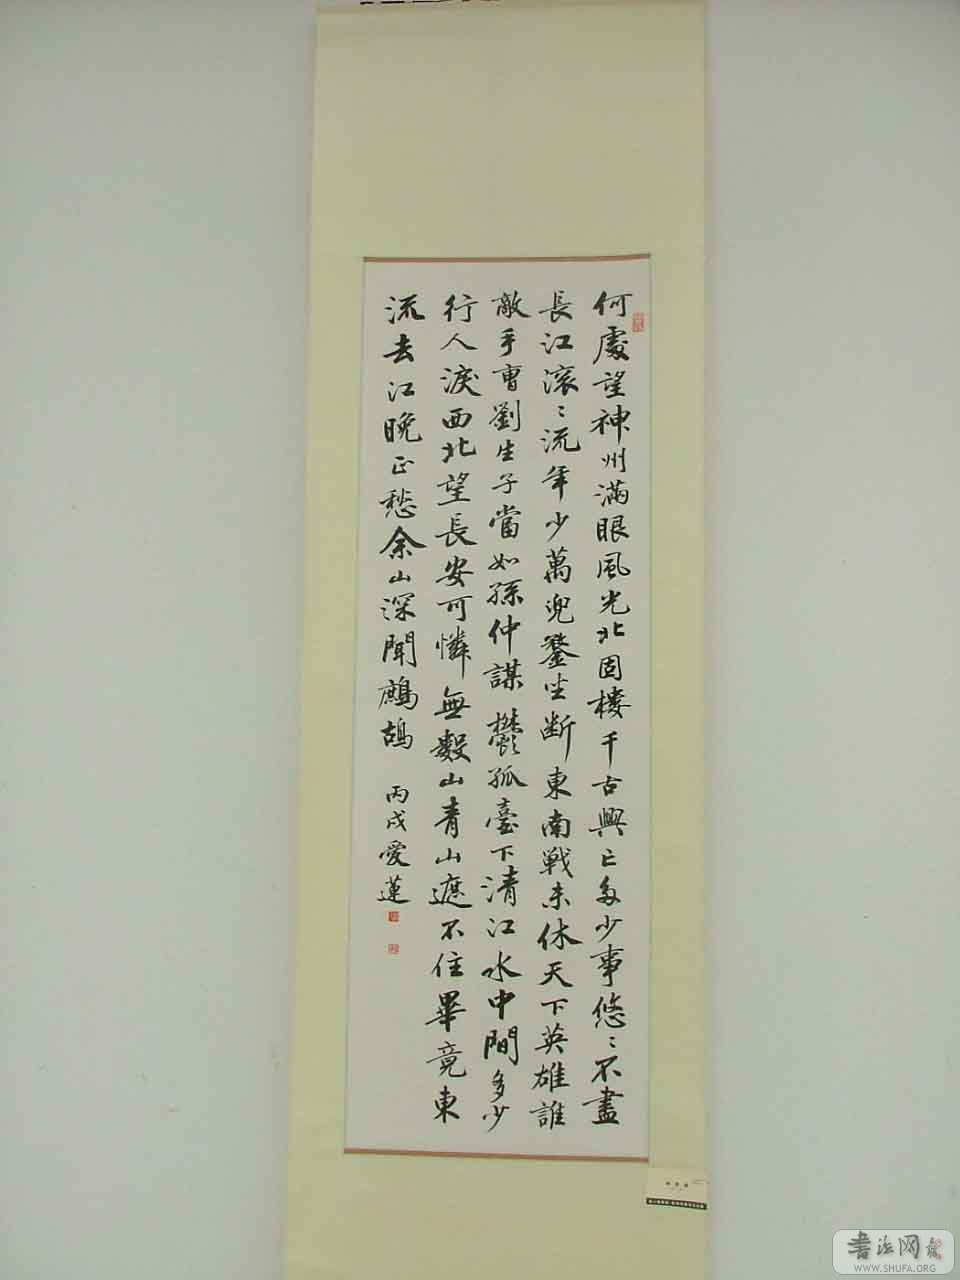 何處望神州滿眼風光北固樓千古興亡多少事悠〻不盡
長江滚〻流年少萬兜鍪坐斷東南戰未休天下英雄誰
敵手曹劉生子當如孫仲謀鬱孤臺下清江水中間多少
行人淚西北望長安可憐無數山青山遮不住畢竟東
流去江晚正愁余山深聞鷓鴣
丙戌愛蓮
书法网
WWW.SHUFA.ORG